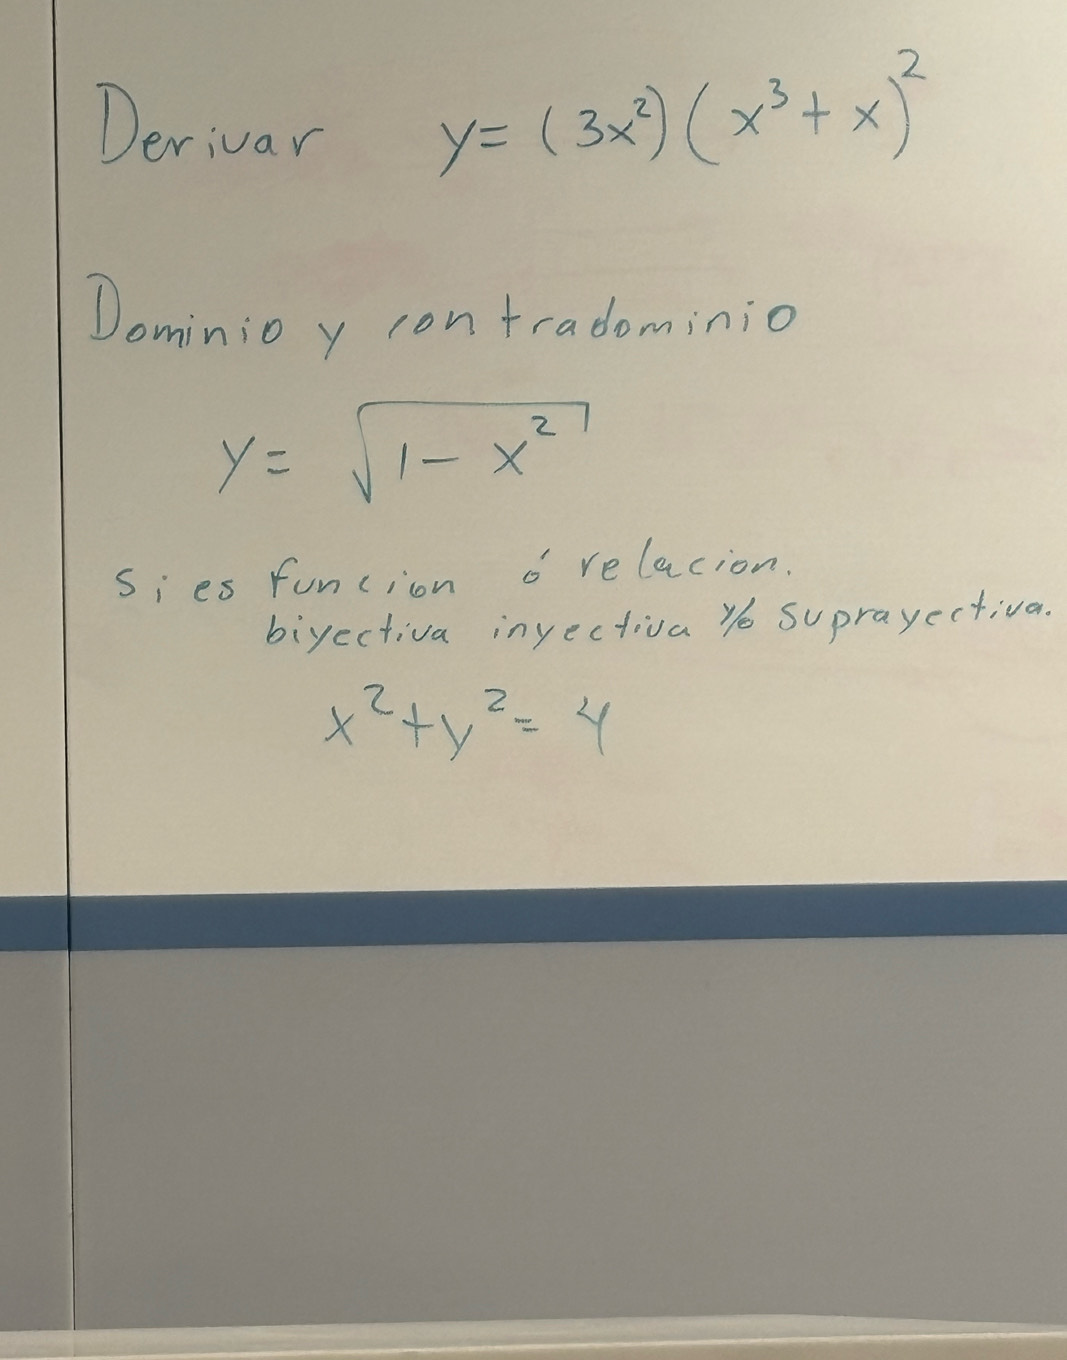 Derivar y= (3x²)(x³+x)²
Dominio y contradominio
y= √1-x²
Si es funcion ó relacion.
biyectiva inyectiva y/o suprayectiva.
x²+y²= 4